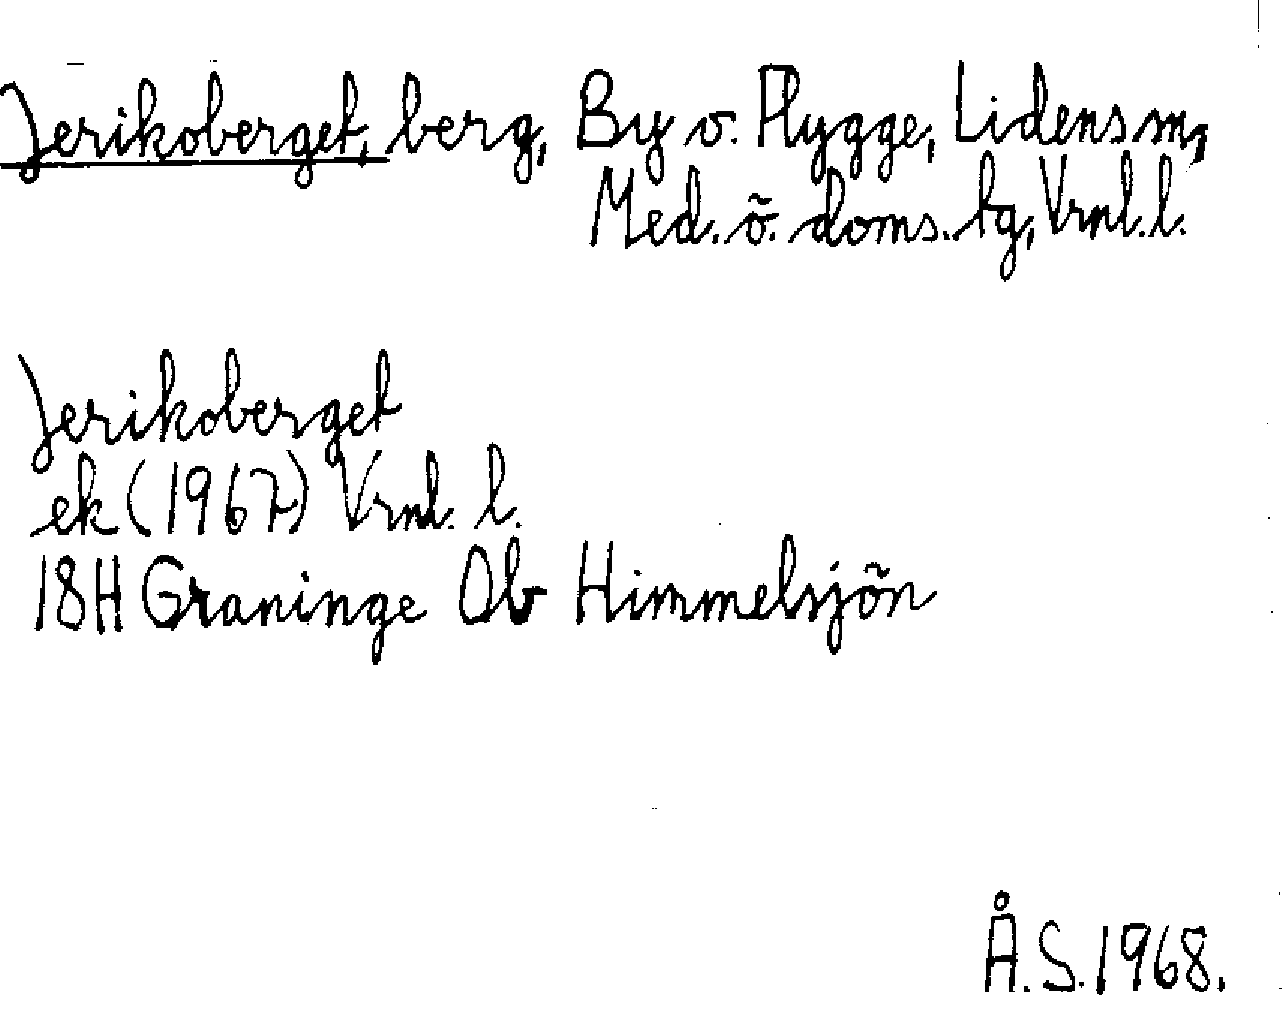 Jerikoberget, berg, By o. Flygge, Lidens sn,
Med. ö. doms. tg, Vrnl. l.
Jerikoberget
ek (1967) Vrnl. l.
18H Graninge Ob Himmelsjön
Å.S. 1968.